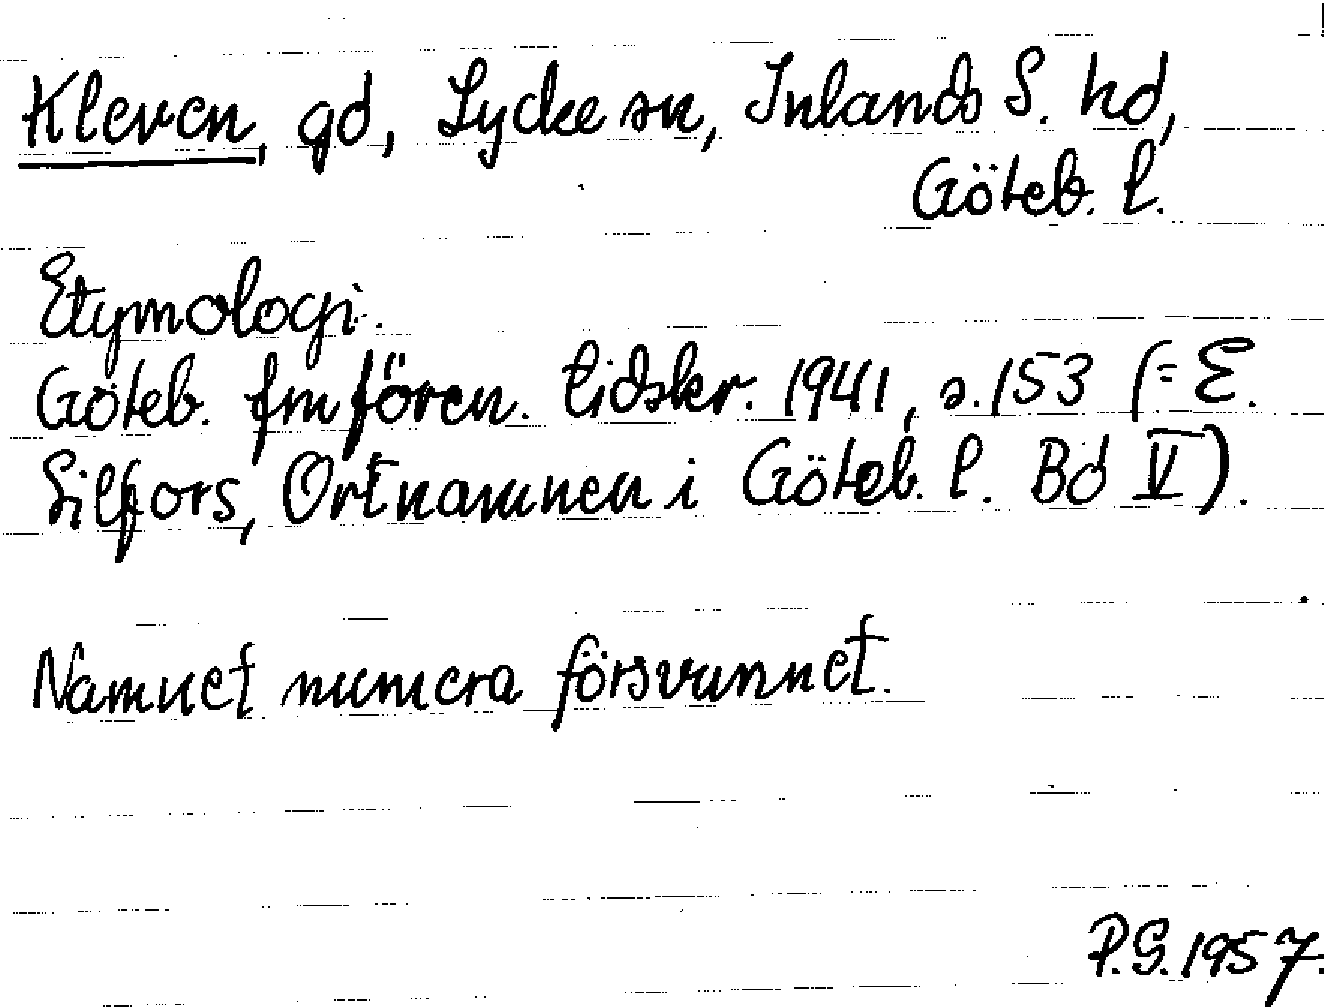 Kleven, gd, Lycke sn, Inlands S. hd,
Göteb. l.
Etymologi.
Göteb. fmfören. tidskr. 1941, s. 153 (= E.
Lilfors, Ortnamnen i Göteb. l. Bd V).
Namnet numera försvunnet.
P.G. 1957.